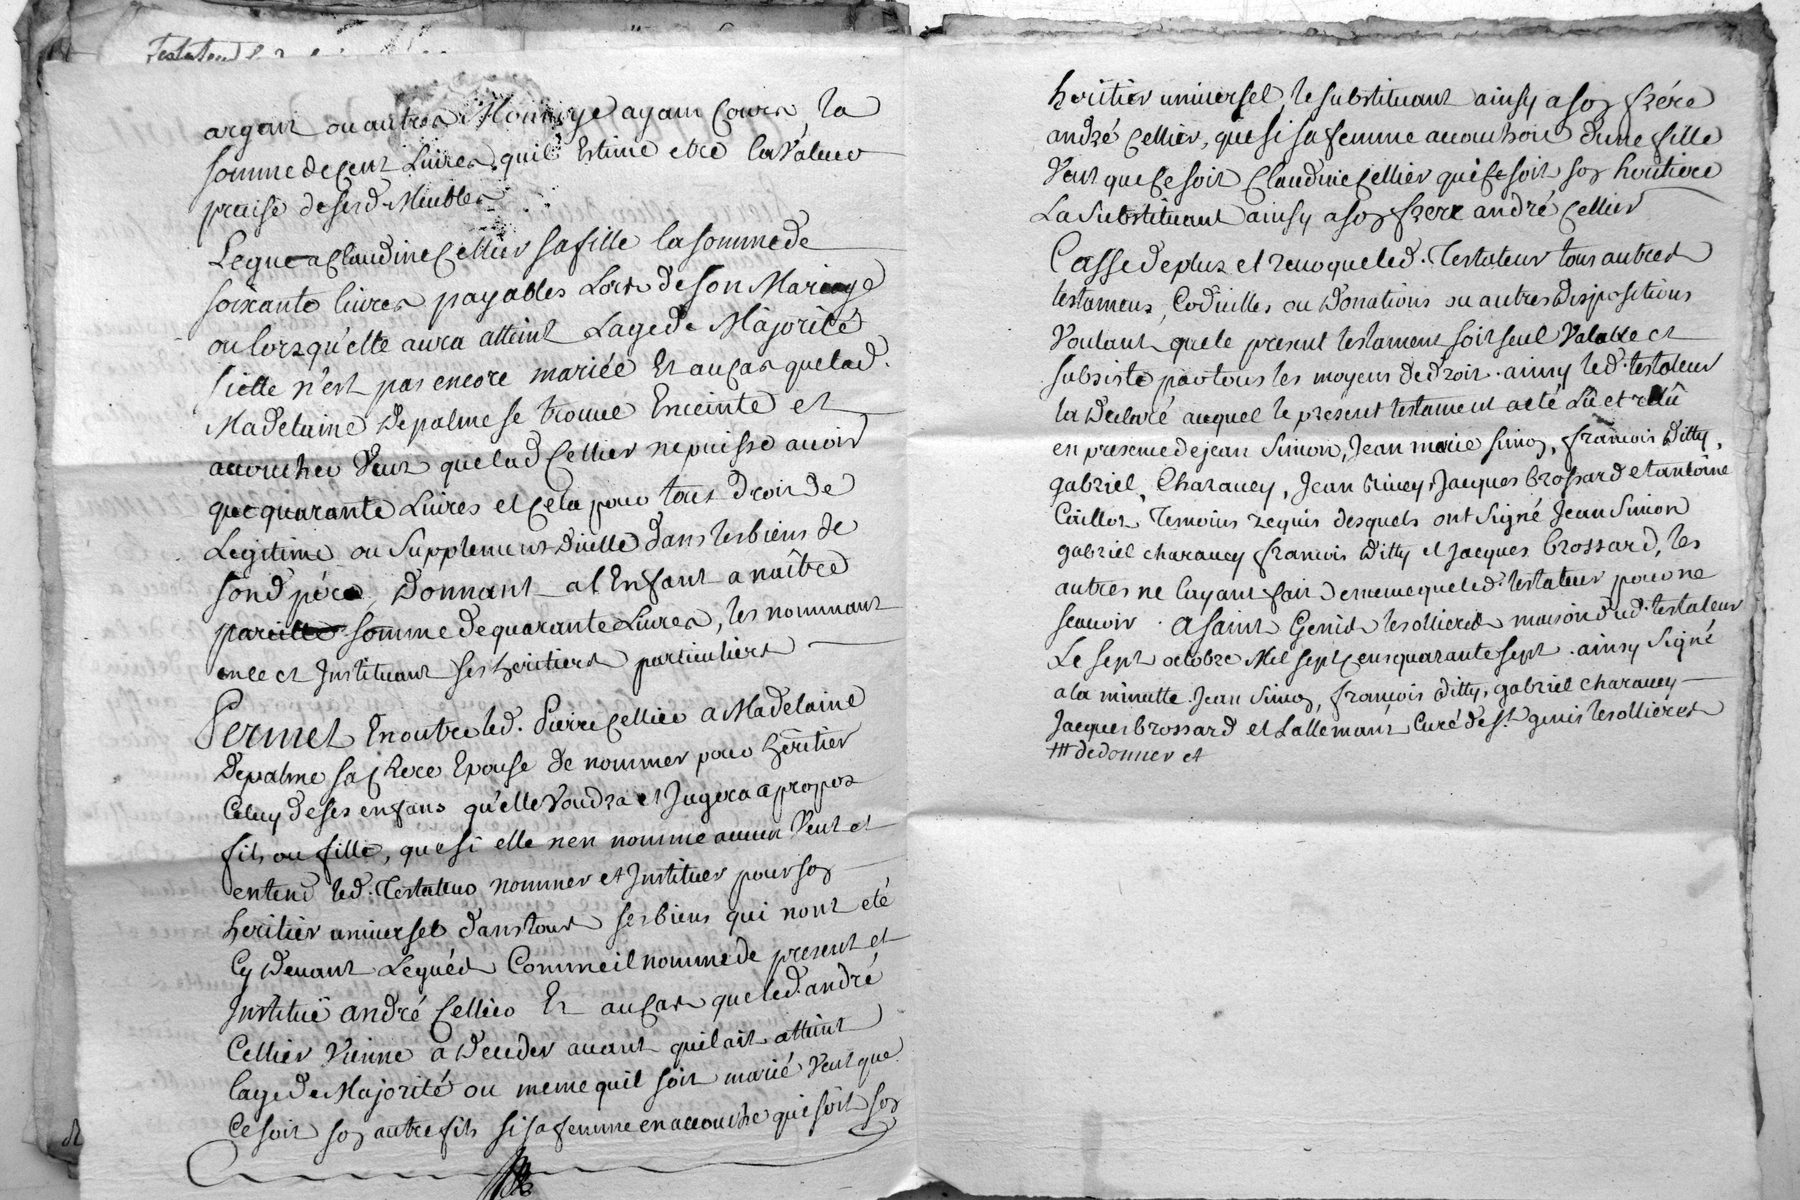 Testateur
argent ou autres Monnoye ayant Cours, la
somme de Cent Livres, quil Estime etre la Valeur
prise de sesd. Meubles
Legue a Claudine Cellier sa fille la somme de
soixante livres payables Lors de son Mariage
ou lorsqu'elle aura atteint Lage de Majorité
sielle n'est pas encore mariée Et au Cas que lad.
Madelaine Depalme se trouve Enceinte et
accoucher Veut que lad Cellier ne puisse avoir
que quarante Livres et Cela pour tous droit de
Legitime ou Supplement Dicelle dans les biens de
sond père Donnant a l'Enfant a naître
pareille somme de quarante Livres, les nommant
en ce et Instituant ses heritiers particuliers
Permet En outre led. Pierre Cellier a Madelaine
Depalme sa Chere Epouse de nommer pour Héritier
Celuy de ses enfans qu'elle Voudra et Jugera a propos
fils ou fille, que si elle n'en nomme aucun Veut et
entend led. Testateur nommer et Instituer pour son
heritier universel dans tous ses biens qui n'ont eté
Cy Devant Legués Comme il nomme de present et
Institue andré Cellier Et au Cas que led. andré
Cellier Vienne a Deceder avant quil ait atteint
lage de Majorité ou meme quil soit marié Veut que
Ce soit son autre fils si sa femme en accouche qui soit son
heritier universel, le substituant ainsy a son frére
andré Cellier, que si sa femme accouchoit d'une fille
Veut que Ce soit Claudine Cellier qui Ce soit son heritiere
La Substituant ainsy a son frere andré Cellier
Casse de plus et revoque led. Testateur tous autres
testamens, Codicilles ou Donations ou autres Dispositions
Voulant que le present testament soit seul Valable et
subsiste par tous les moyens de droit. ainsy led. testateur
la Declaré auquel le present testament a eté Lû et relû
en presence de jean Simon, Jean marie Simon, francois Ditty,
gabriel Charavey, Jean Rivey, Jacques brossard et antoine
Caillot Temoins requis desquels ont signé Jean Simon
gabriel charavey francois Ditty et Jacques brossard, les
autres ne layant fait de meme que led. testateur pour ne
scavoir. A saint Genis les ollieres maison dud. testateur
Le sept octobre Mil sept Cens quarante sept. ainsy Signé
a la minutte Jean Simon, francois Ditty, gabriel charavey
Jacques brossard et Lallemant Curé de St. genis les ollieres
ttt de donner et